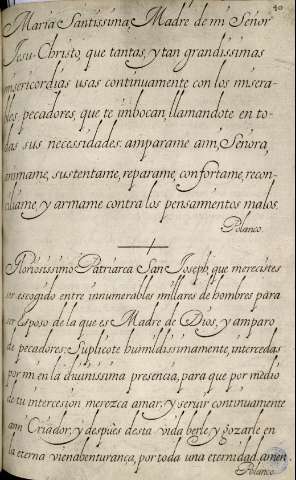 40
Maria Santissima, Madre de mi Señor
Jesu-Christo, que tantas, y tan grandissimas
misericordias usas continuamente con los misera-
bles, pecadores, que te imbocan, llamandote en to-
das sus necessidades: amparame ami, Señora,
animame, sustentame, reparame, confortame, recon-
ciliame, y armame contra los pensamientos malos.
Polanco.
Gloriosissimo Patriarca San Joseph, que merecistes
ser escogido entre innumerables millares de hombres para
ser Esposo de la que es Madre de Dios, y amparo
de pecadores: Suplicote humildissimamente, intercedas
por mi en la diuinissima presencia, para que por medio
de tu intercesion merezca amar, y seruir continuamente
ami Criador, y despues desta vida berle, y gozarle en
la eterna vienabenturança, por toda una eternidad. amen.
Polanco.